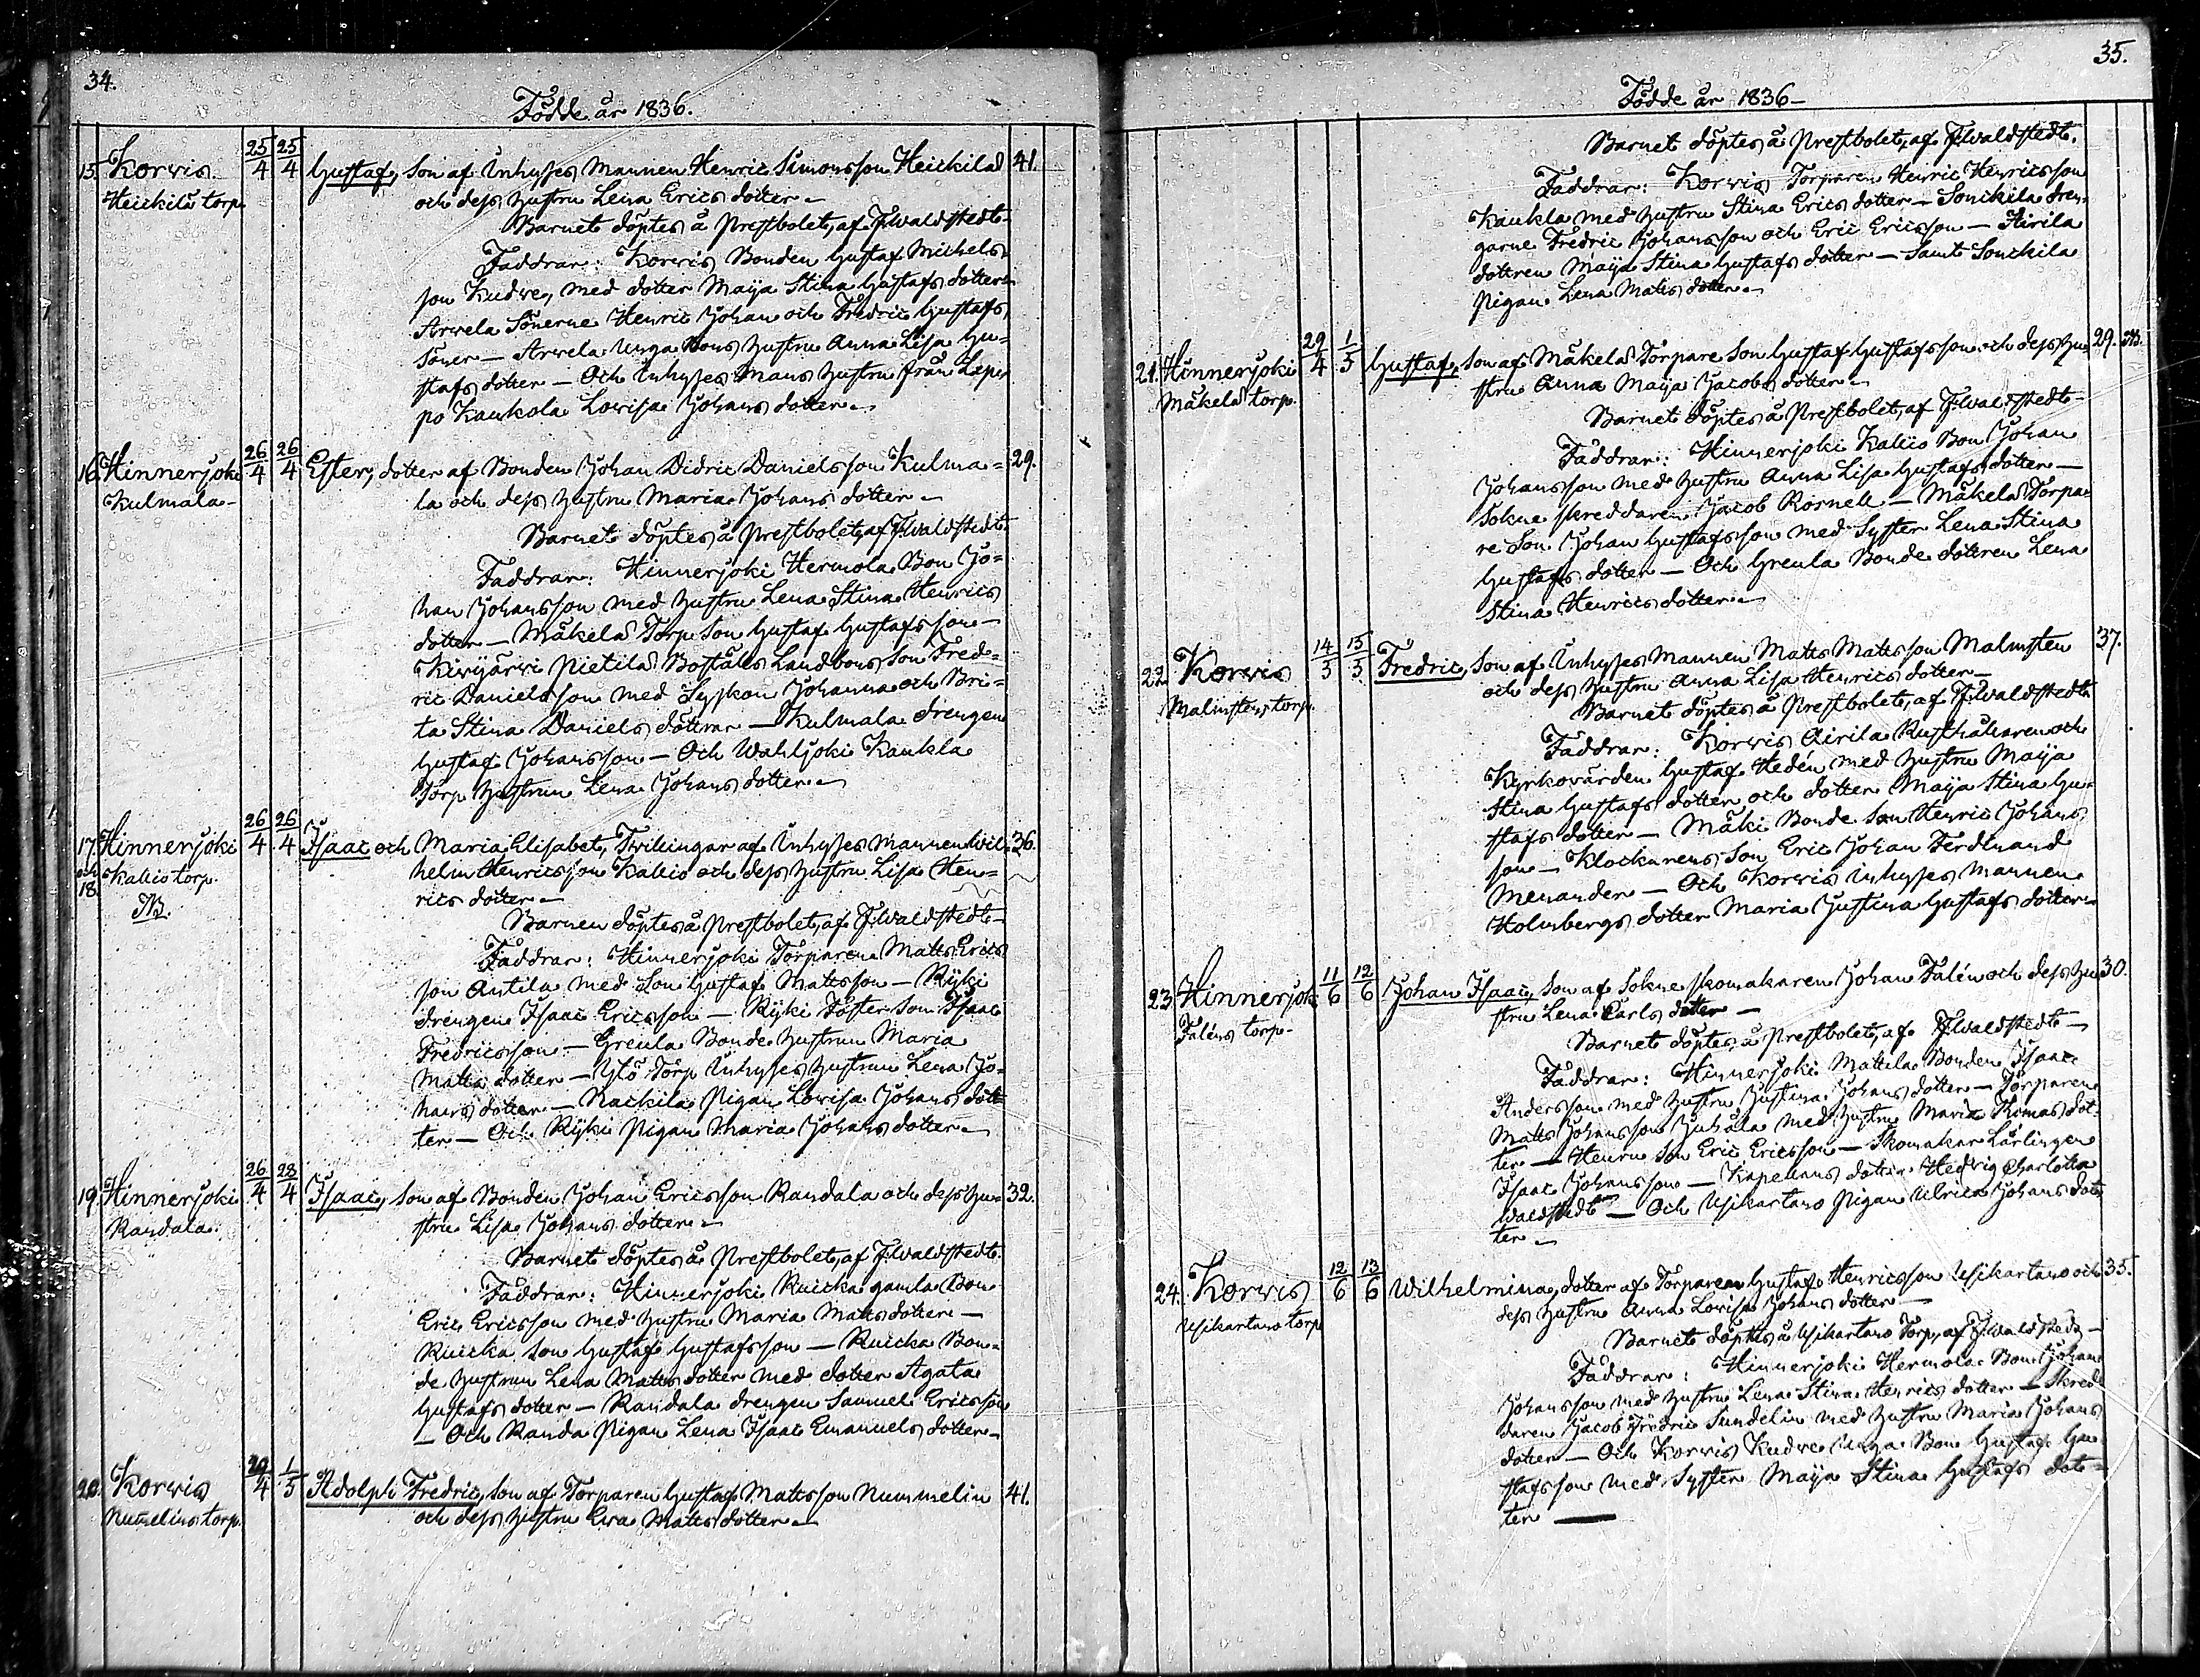 34.
Födde år 1836.
15. Korvis. 25/4 25/4 Gustaf, Son af Inhyses Mannen Henric Simonsson Heickilä 41.
Heickilä torp. och dess hustru Lena Erics dotter.
Barnet döptes å Prestbolet, af F. Waldstedt
Faddrar: Korvis Bonden Gustaf Michels-
son Kudve, med dotter Maija Stina Gustafs dotter
Arvela Sönerne Henric Johan och Fredric Gustafs
Söner — Arvela unga Bons hustru Anna Lisa Gu-
stafs dotter — Och Inhyses Mans hustru från Lap-
po Kaukola Lovisa Johans dotter.
16. Hinnerjoki 26/4 26/4 Ester, dotter af Bonden Johan Didric Danielsson Kulma- 29.
Kulmala la och dess hustru Maria Johans dotter
Barnet döptes å Prestbolet, af F. Waldstedt
Faddrar: Hinnerjoki Hermola Bon Jo-
han Johansson med hustru Lena Stina Henrics
dotter — Mäkelä Torp Son Gustaf Gustafsson —
Kivijärvi Pietilä Boställs Landbons Son Fred-
ric Danielsson med Syskon Johanna och Bri-
ta Stina Daniels döttrar — Kulmala drengen
Gustaf Johansson — Och Wahljoki Kaukla
Torp hustrun Lena Johans dotter
17. Hinnerjoki 26/4 26/4 Isaac och Maria Elisabet, Twillingar af Inhyses Mannen Wil- 36.
och Kallio torp. helm Henricsson Kallio och dess hustru Lisa Hen-
18. NB. rics dotter
Barnen döptes å Prestbolet, af F. Waldstedt
Faddrar: Hinnerjoki Torparen Matts Erics
son Antila med Son Gustaf Mattsson — Ryki
drengen Isaac Ericsson — Ryki Foster Son Isaac
Fredricsson — Greula Bonde hustrun Maria
Matts dotter — Ylö Torp Inhyses hustrun Lena Jo-
hans dotter — Rackila Pigan Lovisa Johans dot-
ter — Och Ryki Pigan Maria Johans dotter
19. Hinnerjoki 26/4 28/4 Isaac, Son af Bonden Johan Ericsson Randala och dess hu- 32.
Randala. stru Lisa Johans dotter
Barnet döptes å Prestbolet, af F. Waldstedt
Faddrar: Hinnerjoki Ruicka gamla Bon
Eric Ericsson med hustru Maria Matts dotter —
Ruicka Son Gustaf Gustafsson — Ruicka Bon-
de hustrun Lena Matts dotter med dotter Agata
Gustafs dotter — Randala drengen Samuel Ericsson
— Och Randa Pigan Lena Isaac Emanuels dotter
20. Korvis 29/4 1/5 Adolph Fredric, Son af Torparen Gustaf Mattsson Nummelin 41.
Numelins torp. och dess hustru Eva Matts dotter
35.
Födde år 1836
Barnet döptes å Prestbolet, af F. Waldstedt.
Faddrar: Korvis Torparen Henric Henricsson
Kaukla med hustru Stina Erics dotter — Sonckila dren-
garne Fredric Johansson och Eric Ericsson — Airila
dottren Maija Stina Gustafs dotter — Samt Sonckila
Pigan Lena Matts dotter
21. Hinnerjoki 29/4 1/5 Gustaf, Son af Mäkelä Torpare Son Gustaf Gustafsson och dess hu- 29. NB.
Mäkelä torp. stru Anna Maija Jacobs dotter
Barnet döptes å Prestbolet, af F. Waldstedt
Faddrar: Hinnerjoki Kallio Bon Johan
Johansson med hustru Anna Lisa Gustafs dotter —
Sokne skreddaren Jacob Rosnell — Mäkelä Torpa-
re Son Johan Gustafsson med Syster Lena Stina
Gustafs dotter — Och Greula Bonde dottren Lena
Stina Henrics dotter
22. Korvis 14/5 15/5 Fredric, Son af Inhyses Mannen Matts Mattsson Malmsten 37.
Malmstens torp. och dess hustru Anna Lisa Henrics dotter
Barnet döptes å Prestbolet, af F. Waldstedt
Faddrar: Korvis Airila Rusthållaren och
Kyrkovärden Gustaf Hedén med hustru Maija
Stina Gustafs dotter och dotter Maija Stina Gu-
stafs dotter — Mäki Bonde Son Henric Johans
son — Klockarens Son Eric Johan Ferdinand
Menander — Och Korvis Inhyses Mannen
Holmbergs dotter Maria Justina Gustafs dotter
23. Hinnerjoki 11/6 12/6 Johan Isaac, Son af Sokne skomakaren Johan Falén och dess hu- 30.
Faléns torp. stru Lena Carls dotter —
Barnet döptes å Prestbolet, af F. Waldstedt —
Faddrar: Hinnerjoki Mattila Bonden Isaac
Andersson med hustru Justina Johans dotter — Torparen
Matts Johansson Juhala med hustru Maria Thomas dot-
ter — Henru Son Eric Ericsson — Skomakare Lärlingen
Isaac Johansson — Kapellans dotter Hedvig Charlotta
Waldstedt — Och Usikartano Pigan Ulrica Johans dot-
ter —
24. Korvis 12/6 13/6 Wilhelmina, dotter af Torparen Gustaf Henricsson Usikartano och 35.
Usikartano torp dess hustru Anna Lovisa Johans dotter —
Barnet döptes å Usikartano Torp, af F. Waldstedt —
Faddrar: Hinnerjoki Hermola Bon Johan
Johansson med hustru Lena Stina Henrics dotter — Skred-
daren Jacob Fredric Sundelin med hustru Maria Johans
dotter — Och Korvis Kudve unga Bon Gustaf Gu-
stafsson med Syster Maija Stina Gustafs dot-
ter —